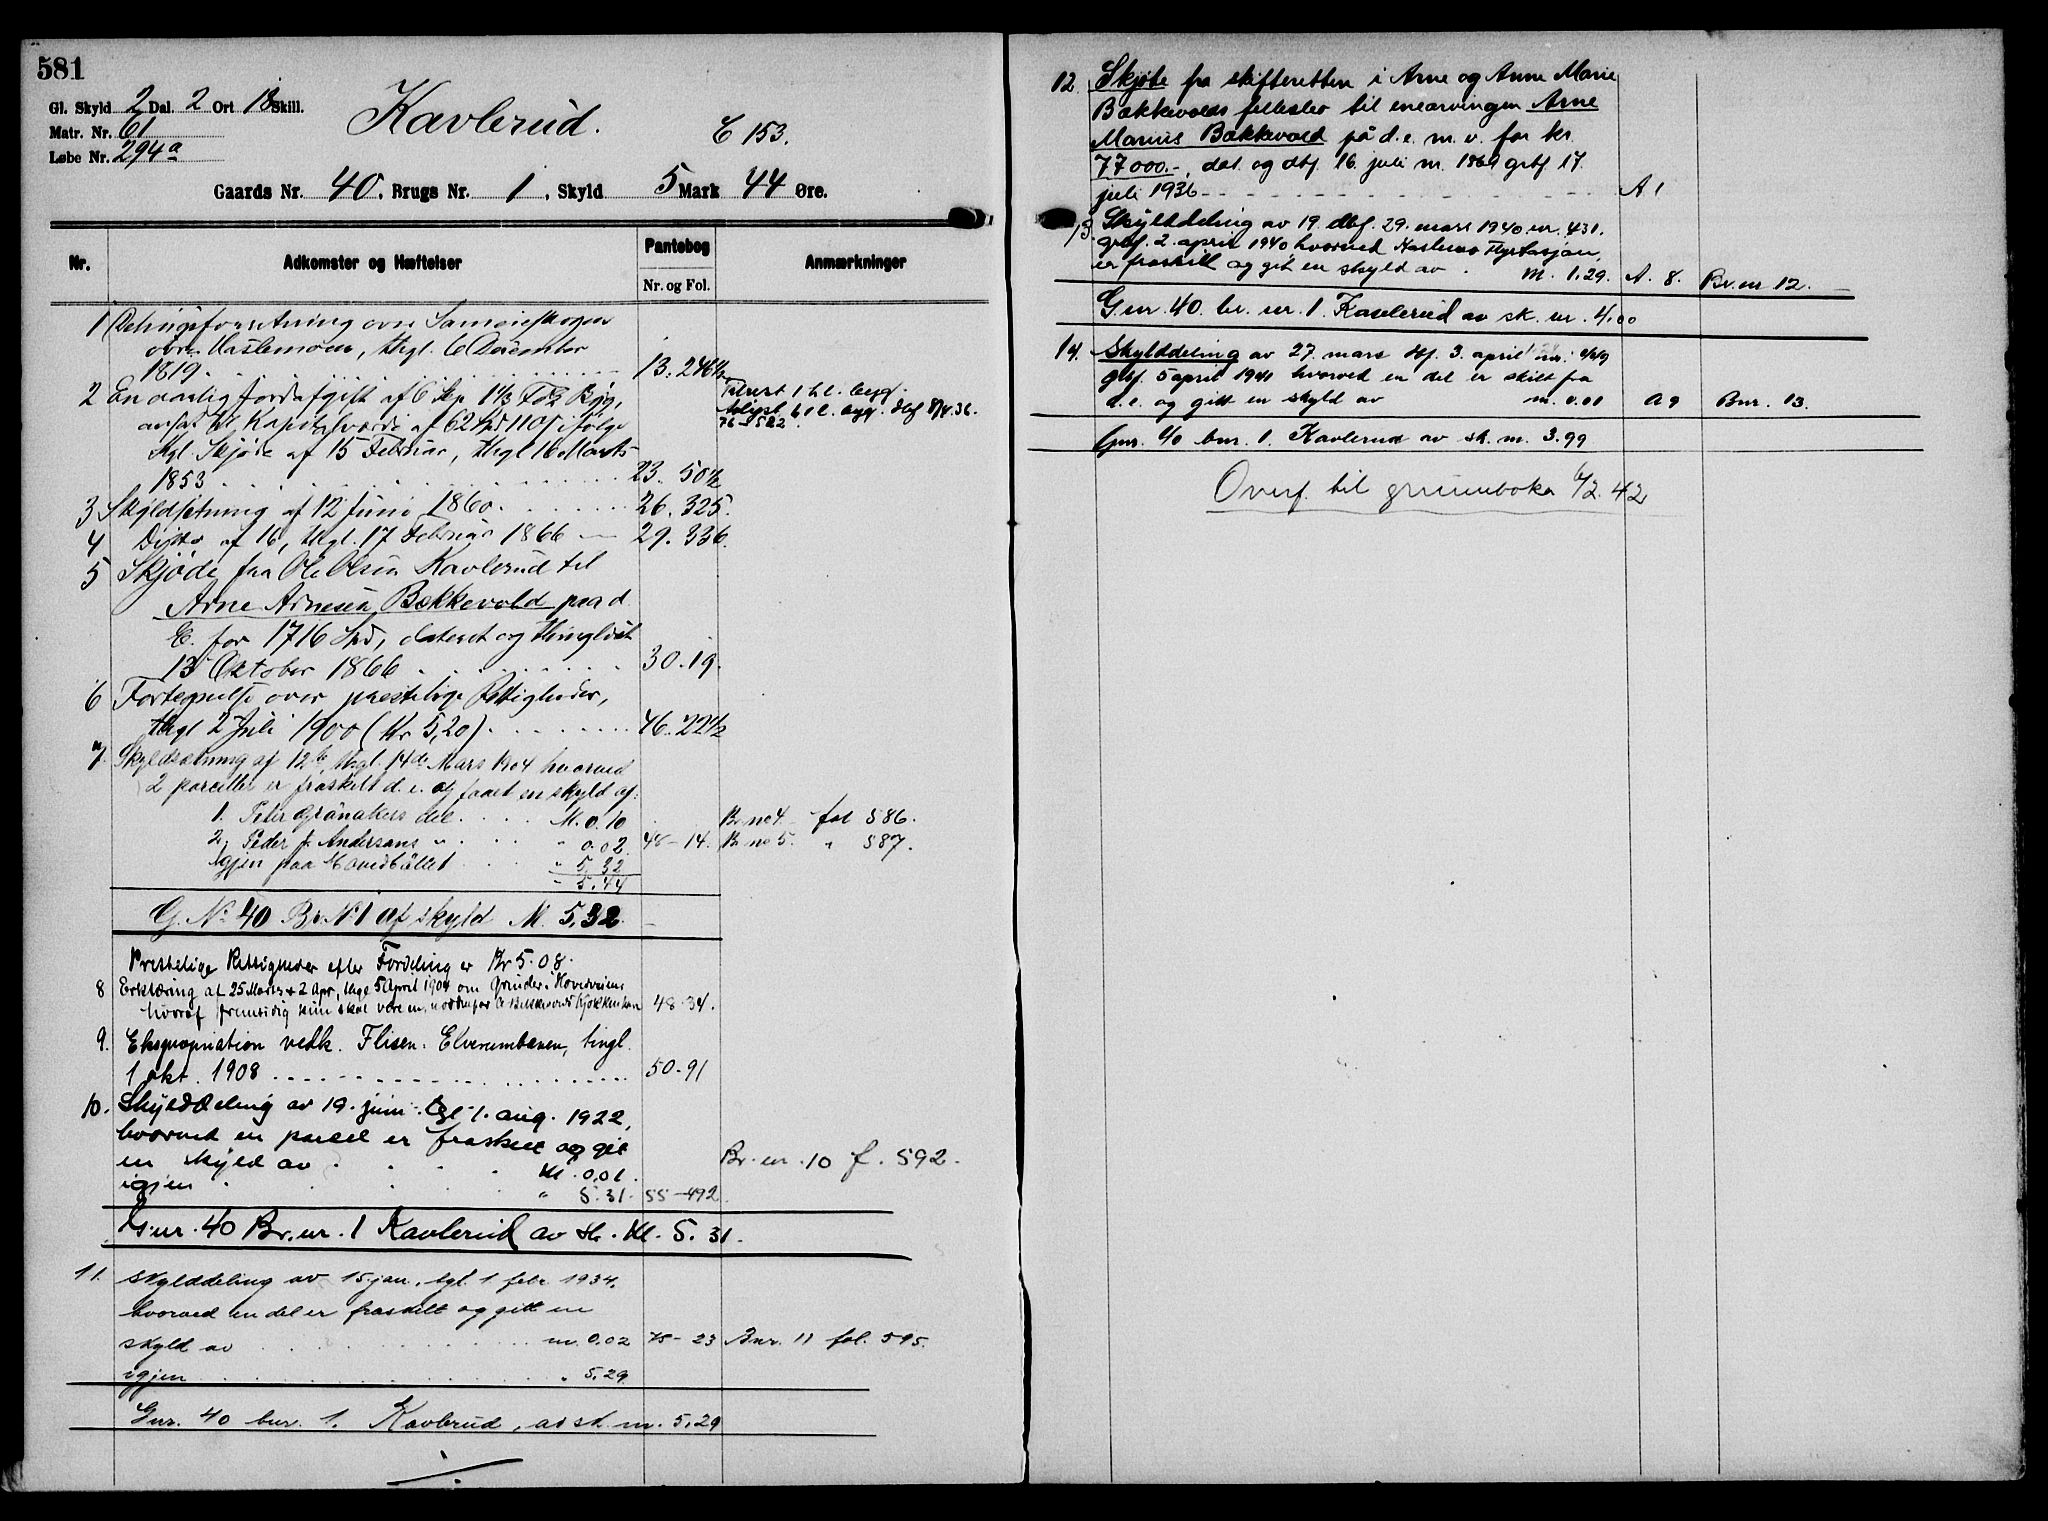 581
Gl. Skyld 2 Dal. 2 Ort 18 Skill.
Matr. Nr. 61
Løbe Nr. 294a
Kavlerud.
E 153.
Gaards Nr. 40, Brugs Nr. 1, Skyld 5 Mark 44 Øre.
Nr.
Adkomster og Hæftelser
Pantebog
Nr. og Fol.
Anmærkninger
1 Delingsforretning over Sameieskogen
over Haslemoen, thgl. 6 December
1819. 13. 246½
2 En aarlig Jordafgift af 6 Skp 1⅓ Fdg Byg,
ansat til Kapitalværdi af 62 Spd 110 s ifølge
thgl. Skjøde af 15 Februar, thgl 16 Marts
1853 23. 50½
Aflyst 6/0 l. bygg. dbf 8/4.36.
76-582.
3 Skyldsetning af 12 Juni 1860. 26. 325.
4 Ditto af 16, thgl. 17 Februar 1866 29. 336.
5 Skjøde fra Ole Olsen Kavlerud til
Arne Arnesen Bækkevold paa d.
E. for 1716 Spd, dateret og thinglæst
13 Oktober 1866 30.19.
6 Fortegnelse over præstelige Rettigheder,
thgl 2 Juli 1900 (Kr 5,20). 46. 22½
7. Skyldsætning af 12te, thgl. 14de Mars 1904 hvorved
2 parceller er fraskilt d. e. og faaet en skyld af:
1. Peter Grønakers del M. 0.10 Br no 4. fol 586.
2, Peder J. Andersens " " 0.02 48-14. Br no 5. " 587.
igjen paa Hovedbøllet " 5,32
" 5.44
G. No 40 Br. No 1 af skyld M. 5,32.
Prestelige Rettigheder efter Fordeling er Kr 5.08.
8 Erklæring af 25 Marts & 2 Apr, thgl 5 April 1904 om Grinder i Hovedveien
hvoraf fremtidig kun skal være en, nordenfor A Bækkevolds Kjøkkenhave 48-34.
9. Ekspropriation vedk. Flisen-Elverumbanen, tingl.
1 okt. 1908 50-91
10. Skylddeling av 19. juni tgl 1. aug. 1922,
hvorved en parcel er fraskilt og git
en skyld av M. 0.01. Br. nr. 10 f. 592.
igjen " 5.31. 55-492.
G.nr. 40 Br.nr. 1 Kavlerud av sk. M. 5.31.
11. Skylddeling av 15 jan., tgl. 1 febr 1934.
hvorved en del er fraskilt og gitt en
skyld av m. 0.02 75-23 Bnr. 11 fol. 595.
igjen " 5.29
Gnr. 40 bnr. 1. Kavlerud, av sk. m. 5.29
./.
12. Skjøte fra skifteretten i Arne og Anne Marie
Bækkevolds fellesbo til enearvingen Arne
Marius Bækkevold på d.e. m. v. for kr
77000.-, dat. og dbf. 16. juli nr. 1869 grbf 17
juli 1936 A 1
13 Skylddeling av 19. dbf. 29. mars 1940 nr. 431.
grbf. 2. april 1940 hvorved Haslemo Flystasjon,
er fraskilt og git en skyld av M. 1.29. A. 8. Br.nr 12.
G.nr. 40. br. nr. 1. Kavlerud av sk. nr. 4.00
14. Skylddeling av 27. mars dbf. 3. april nr.
gbf. 5 april 1941 hvorved en del er skilt fra
d.e. og gitt en skyld av m. 0.01 A 9 Bnr. 13.
Gnr. 40 bnr. 1. Kavlerud av sk. m. 3.99
Overf. til grunnboka 6/2. 42